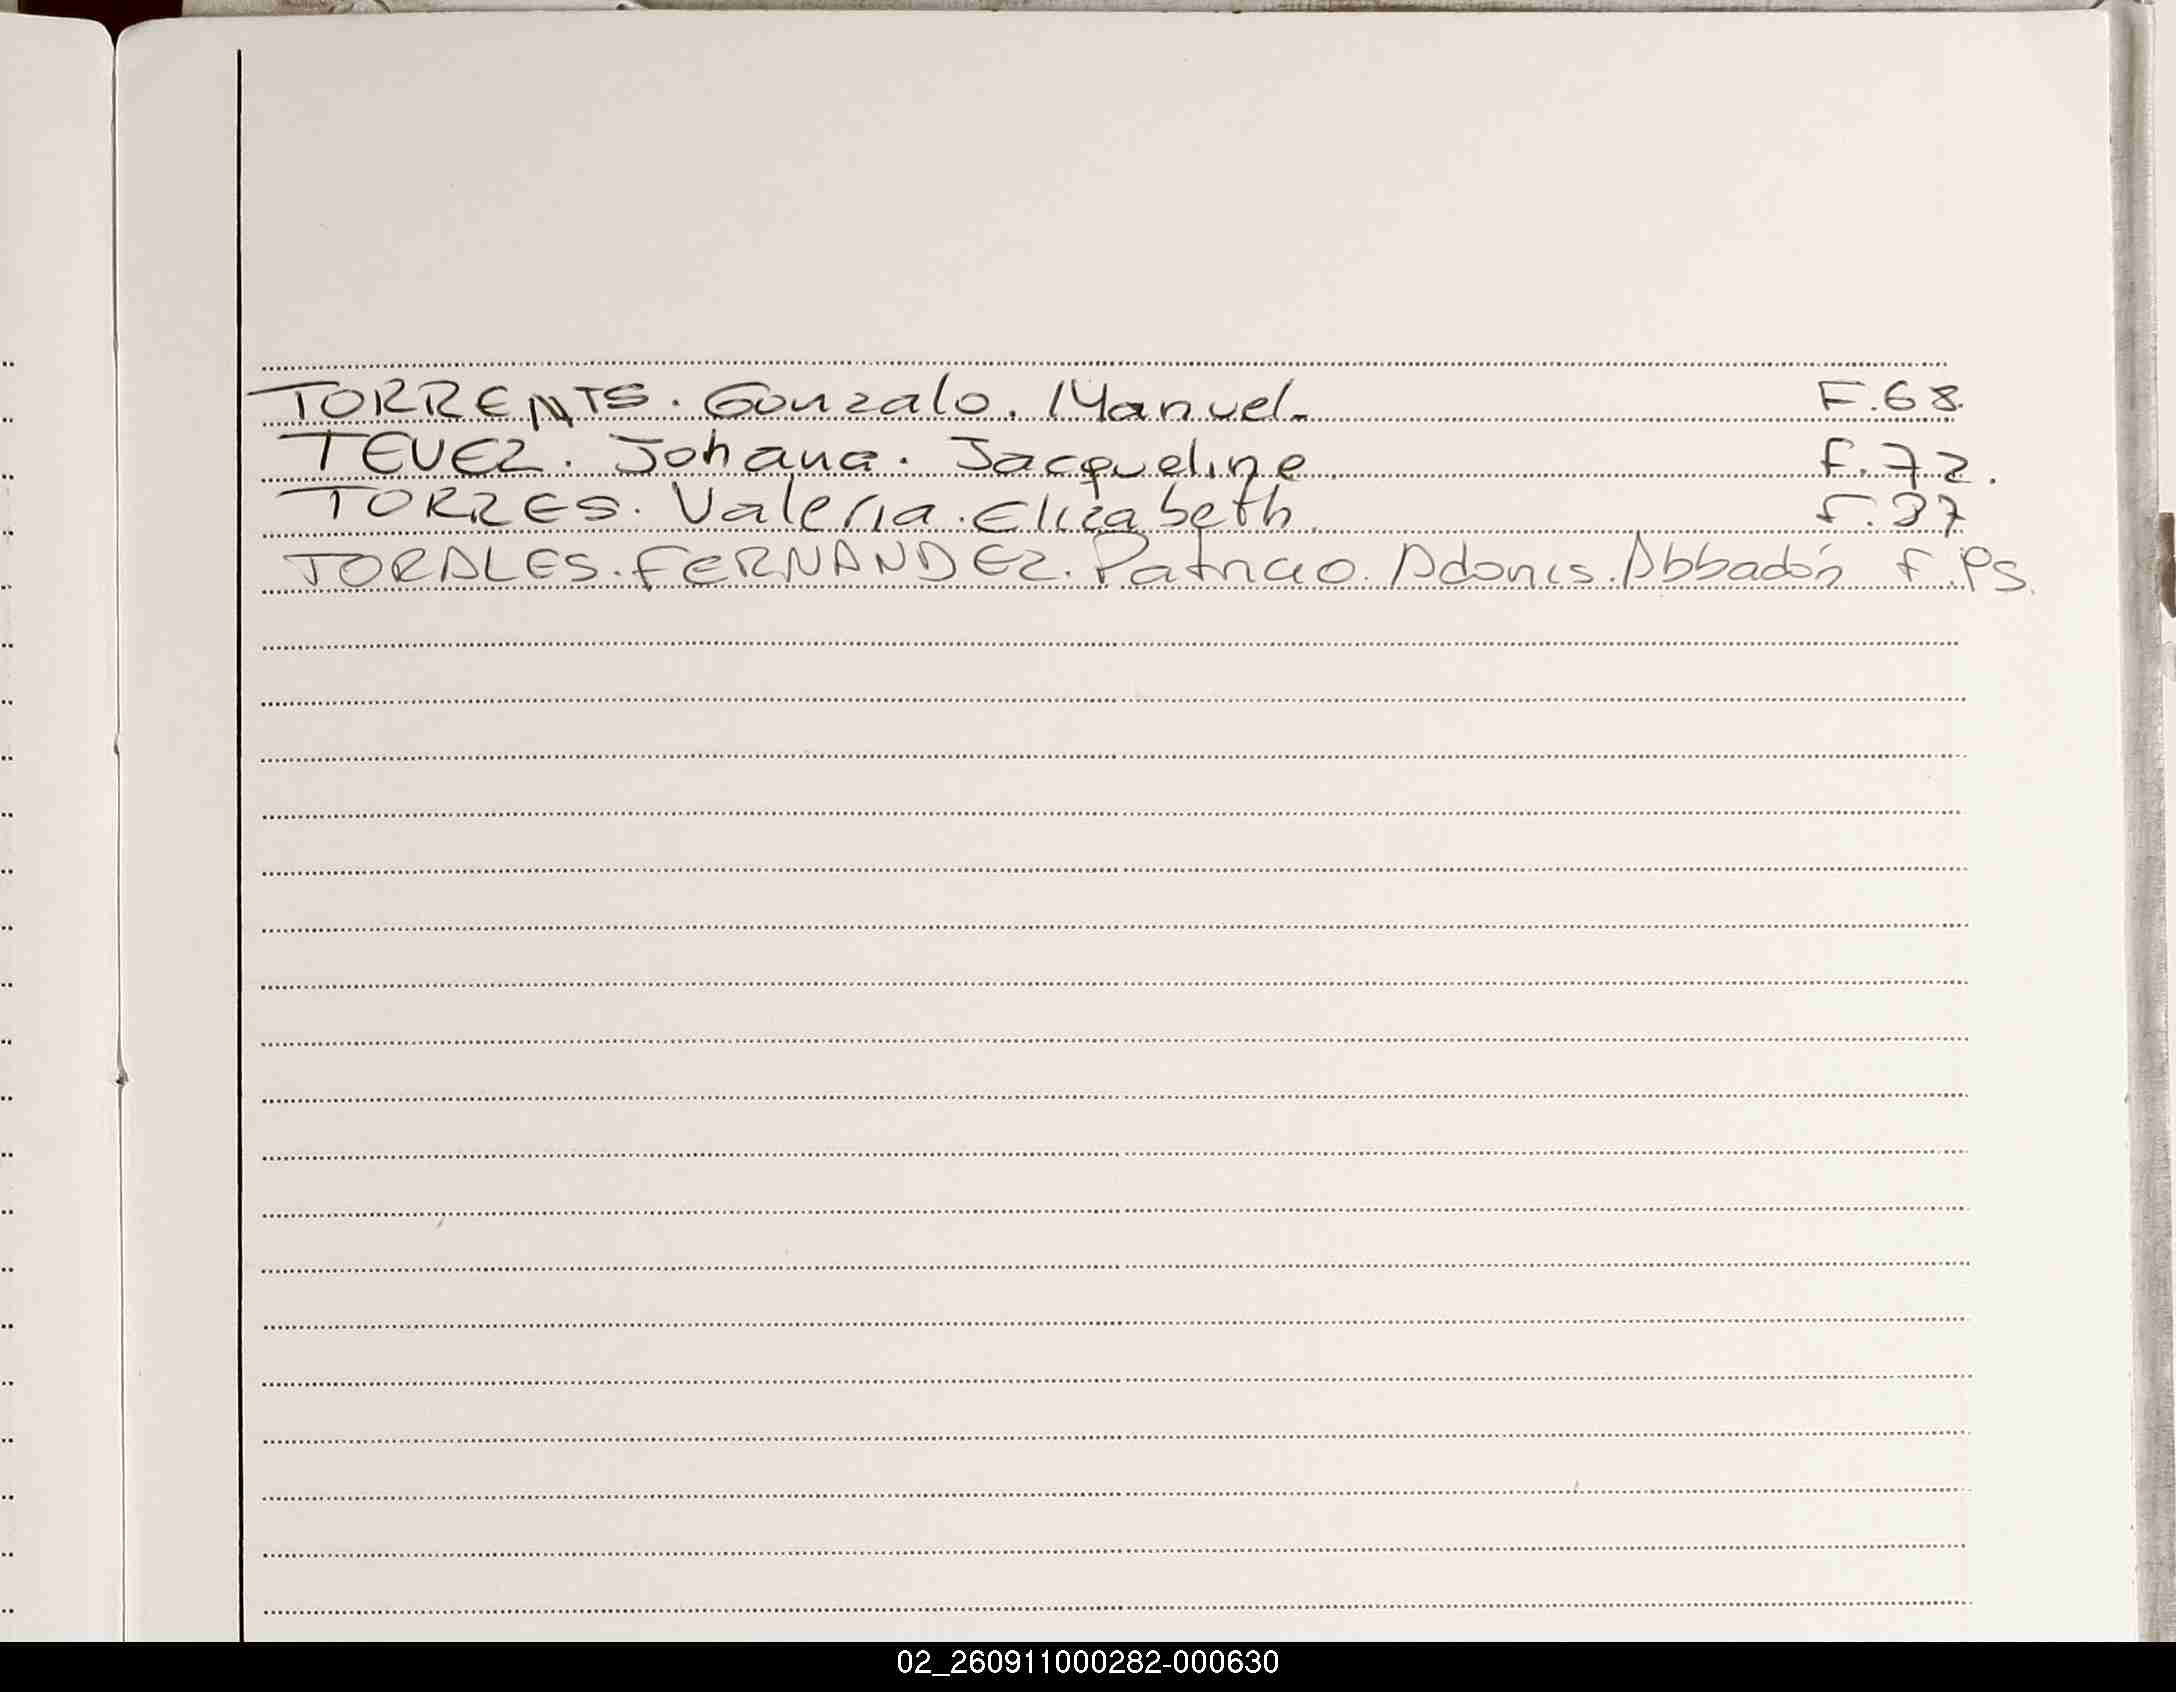 TORRENTS. Gonzalo. Manuel. F.68.
TEVEZ. Johana. Jacqueline F.72.
TORRES. Valeria. Elizabeth. F.37
TORALES. FERNANDEZ. Patricio. Adonis. Abbadón F.
02_260911000282-000630